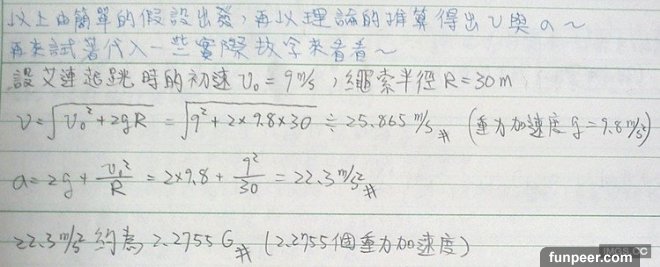 以上由簡單的假設出發，再以理論的推算得出 v 與 a ~
再來試著代入一些實際數字來看看 ~
設艾連起跳時的初速 v₀ = 9 m/s ，繩索半徑 R = 30 m
v = √(v₀² + 2gR) = √(9² + 2×9.8×30) ≒ 25.865 m/s # (重力加速度 g = 9.8 m/s²)
a = 2g + v₀²/R = 2×9.8 + 9²/30 = 22.3 m/s² #
22.3 m/s² 約為 2.2755 G # (2.2755個重力加速度)
IMGS.CC
funpeer.com